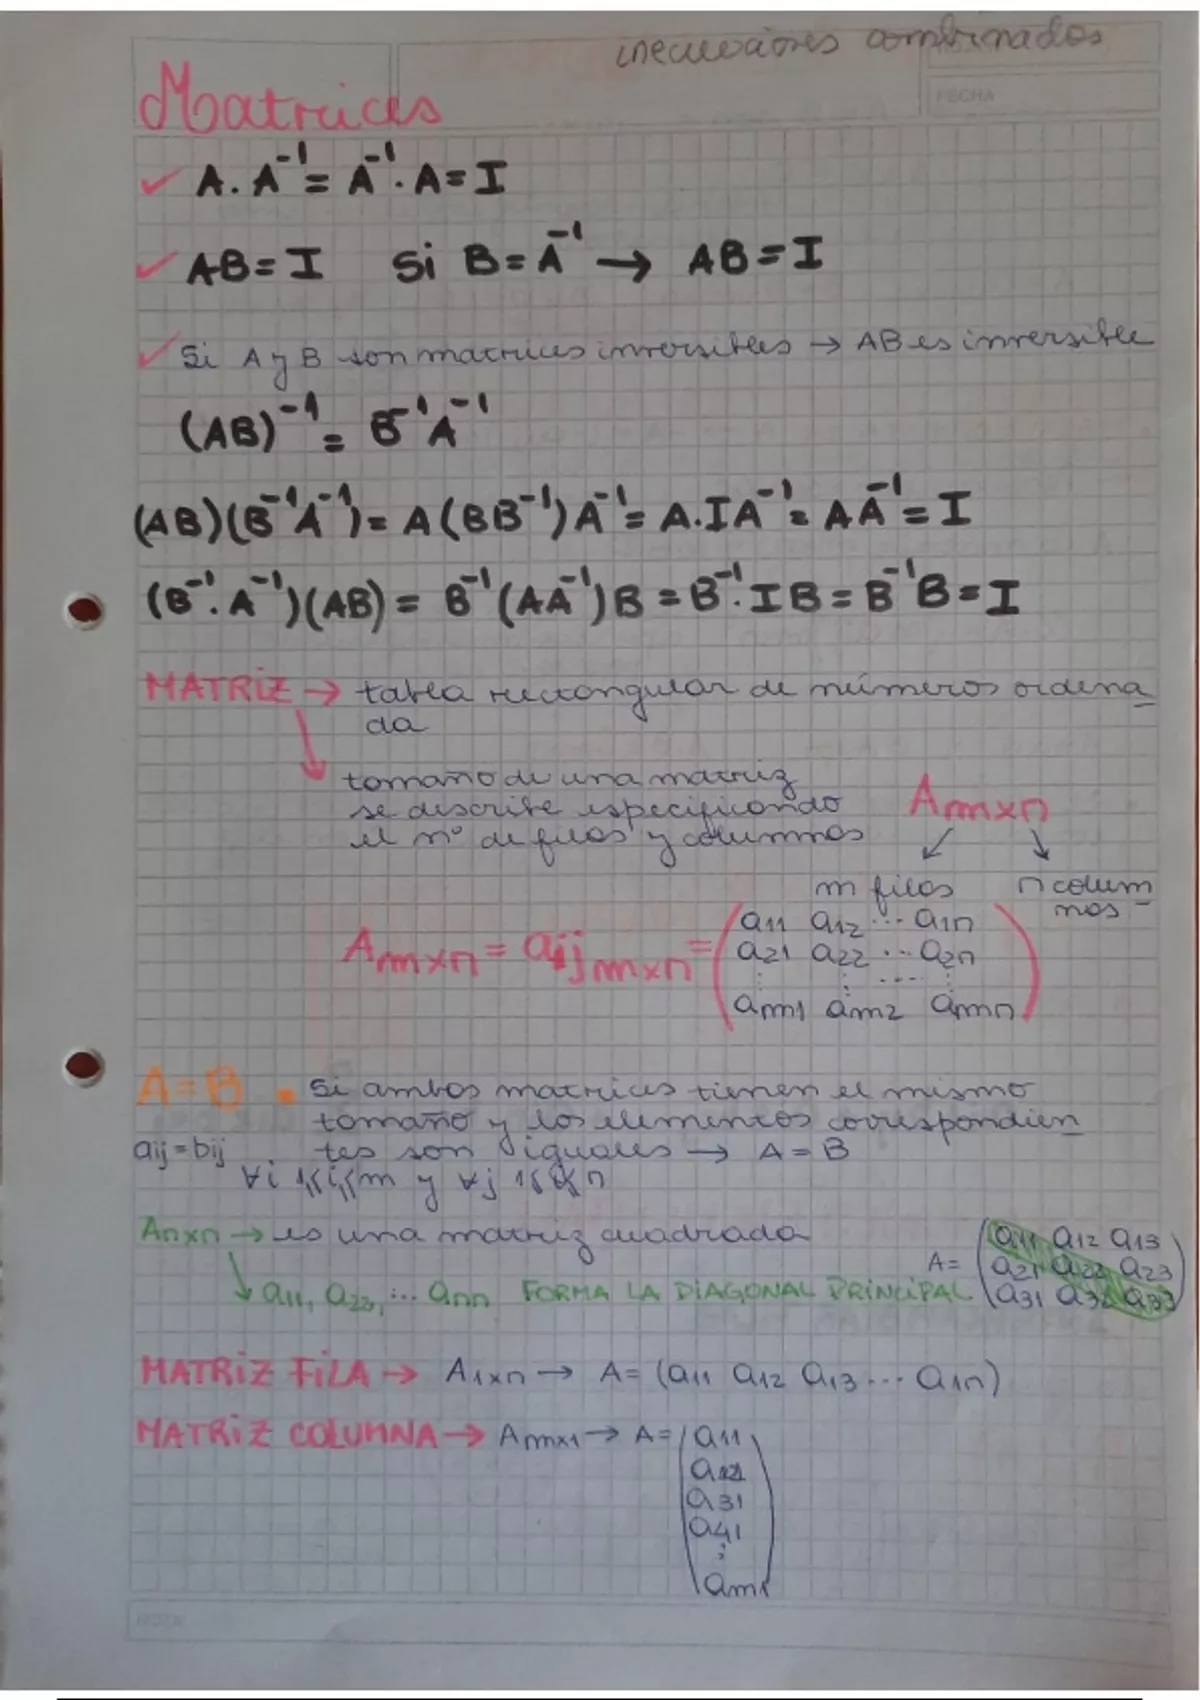 inecuaciones combinados
FECHA
Matrices
✓ A. A⁻¹ = A⁻¹ . A = I
✓ AB = I   Si B = A⁻¹ → AB = I
✓ Si A y B son matrices inversibles → AB es inversible
(AB)⁻¹ = B⁻¹A⁻¹
(AB)(B⁻¹A⁻¹) = A(BB⁻¹)A⁻¹ = A.IA⁻¹ = AA⁻¹ = I
(B⁻¹.A⁻¹)(AB) = B⁻¹(AA⁻¹)B = B⁻¹.IB = B⁻¹B = I
MATRIZ → tabla rectangular de números ordena
da
tamaño de una matriz
se describe especificando
el nº de filas y columnas
Amxn
m filas   n colum
nas
Amxn = aij mxn = (a11 a12 ... a1n
a21 a22 ... a2n
am1 am2 amn)
A = B ▪ Si ambas matrices tienen el mismo
tamaño y los elementos correspondien
aij = bij   tes son iguales → A = B
∀i 1≤i≤m y ∀j 1≤j≤n
Anxn → es una matriz cuadrada
a11, a22, ... ann FORMA LA DIAGONAL PRINCIPAL
A = (a11 a12 a13
a21 a22 a23
a31 a32 a33)
MATRIZ FILA → A1xn → A = (a11 a12 a13 ... a1n)
MATRIZ COLUMNA → Amx1 → A = (a11
a21
a31
a41
⋮
am1)
NOTA